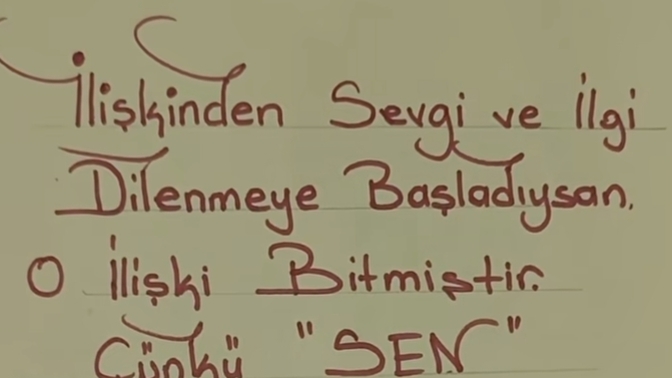 İlişkinden Sevgi ve İlgi
Dilenmeye Başladıysan.
O İlişki Bitmiştir.
Çünkü "SEN"